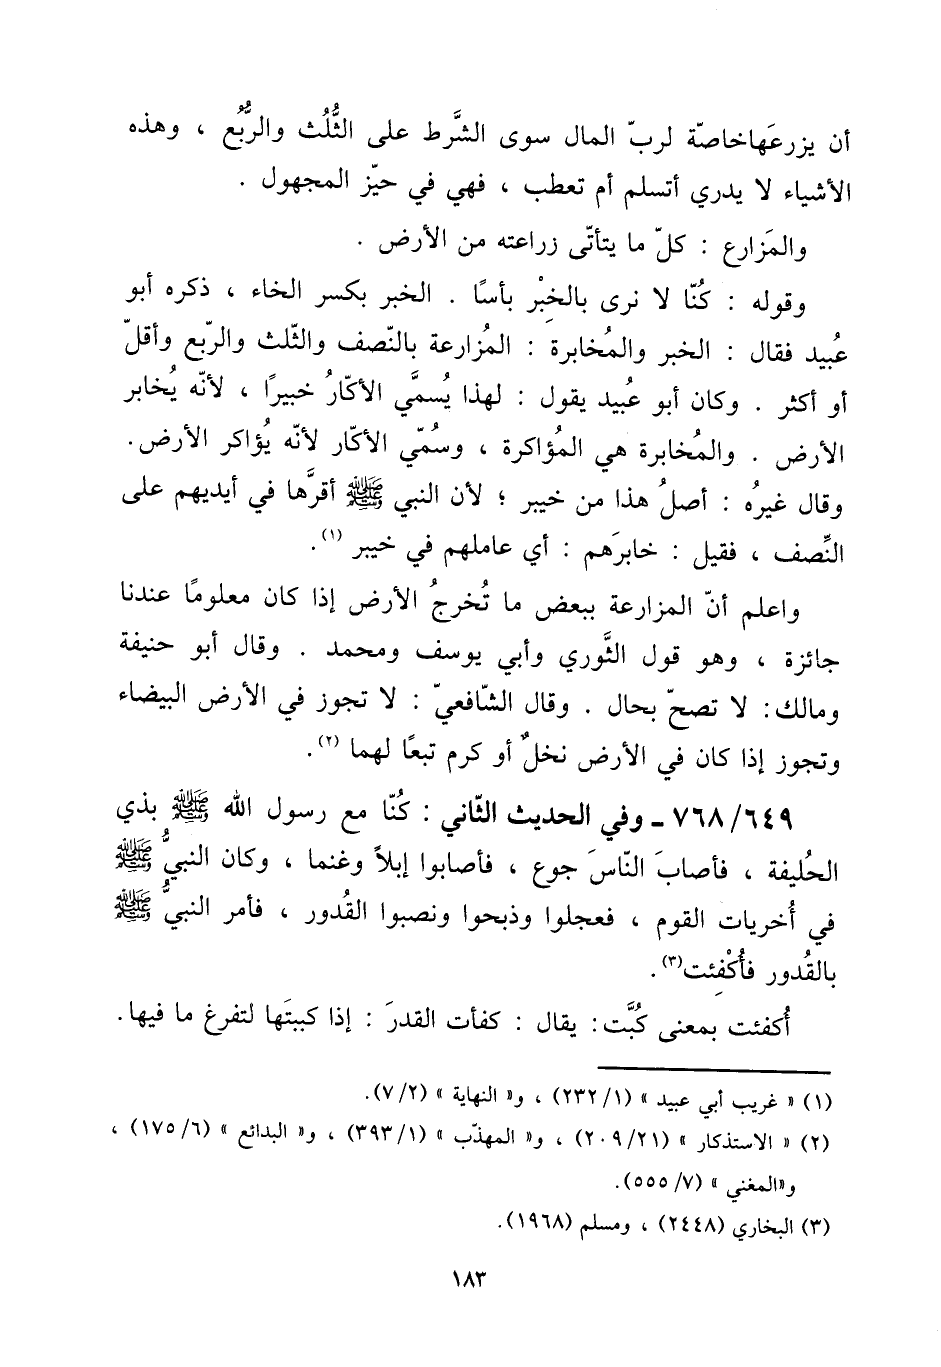 أن يزرعَهاخاصّة لربّ المال سوى الشَّرط على الثُّلُث والرُّبُع ، وهذه
الأشياء لا يدري أتسلم أم تعطب ، فهي في حيّز المجهول .
والمَزارع : كلّ ما يتأتّى زراعته من الأرض .
وقوله : كُنّا لا نرى بالخِبْر بأسًا . الخبر بكسر الخاء ، ذكره أبو
عُبيد فقال : الخبر والمُخابرة : المُزارعة بالنّصف والثّلث والرّبع وأقلّ
أو أكثر . وكان أبو عُبيد يقول : لهذا يُسمَّي الأكّارُ خبيرًا ، لأنّه يُخابر
الأرض . والمُخابرة هي المُؤاكرة ، وسُمّي الأكّار لأنّه يُؤاكر الأرض.
وقال غيرُه : أصلُ هذا من خيبر ؛ لأن النبي ﷺ أقرَّها في أيديهم على
النِّصف ، فقيل : خابرَهم : أي عاملهم في خيبر (١).
واعلم أنّ المزارعة ببعض ما تُخرجُ الأرض إذا كان معلومًا عندنا
جائزة ، وهو قول الثَّوري وأبي يوسف ومحمد . وقال أبو حنيفة
ومالك: لا تصحّ بحال . وقال الشّافعيّ : لا تجوز في الأرض البيضاء
وتجوز إذا كان في الأرض نخلٌ أو كرم تبعًا لهما (٢).
٧٦٨/٦٤٩ ـ وفي الحديث الثّاني : كُنّا مع رسول الله ﷺ بذي
الحُليفة ، فأصابَ النّاسَ جوع ، فأصابوا إبلاً وغنما ، وكان النبيُّ ﷺ
في أُخريات القوم ، فعجلوا وذبحوا ونصبوا القُدور ، فأمر النبيُّ ﷺ
بالقُدور فأُكْفِئت(٣).
أُكفئت بمعنى كُبَّت: يقال : كفأت القدرَ : إذا كببتَها لتفرغ ما فيها.
(١) « غريب أبي عبيد » (١/ ٢٣٢) ، و« النهاية » (٢/ ٧).
(٢) « الاستذكار » (٢١/ ٢٠٩) ، و« المهذّب » (١/ ٣٩٣) ، و« البدائع » (٦/ ١٧٥) ،
و«المغني » (٧/ ٥٥٥).
(٣) البخاري (٢٤٤٨) ، ومسلم (١٩٦٨).
١٨٣